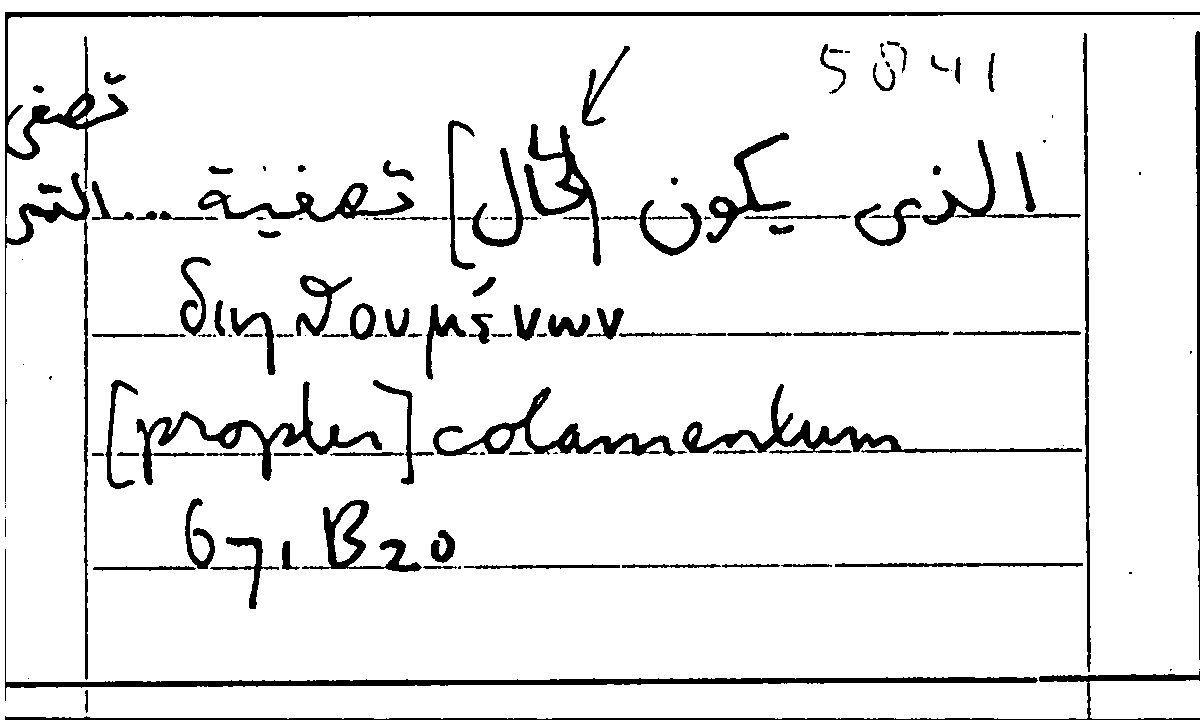 5841
تصفى
الذى يكون [لحال] تصفية ... التى
διηθουμένων
[propter] colamentum
671 B20